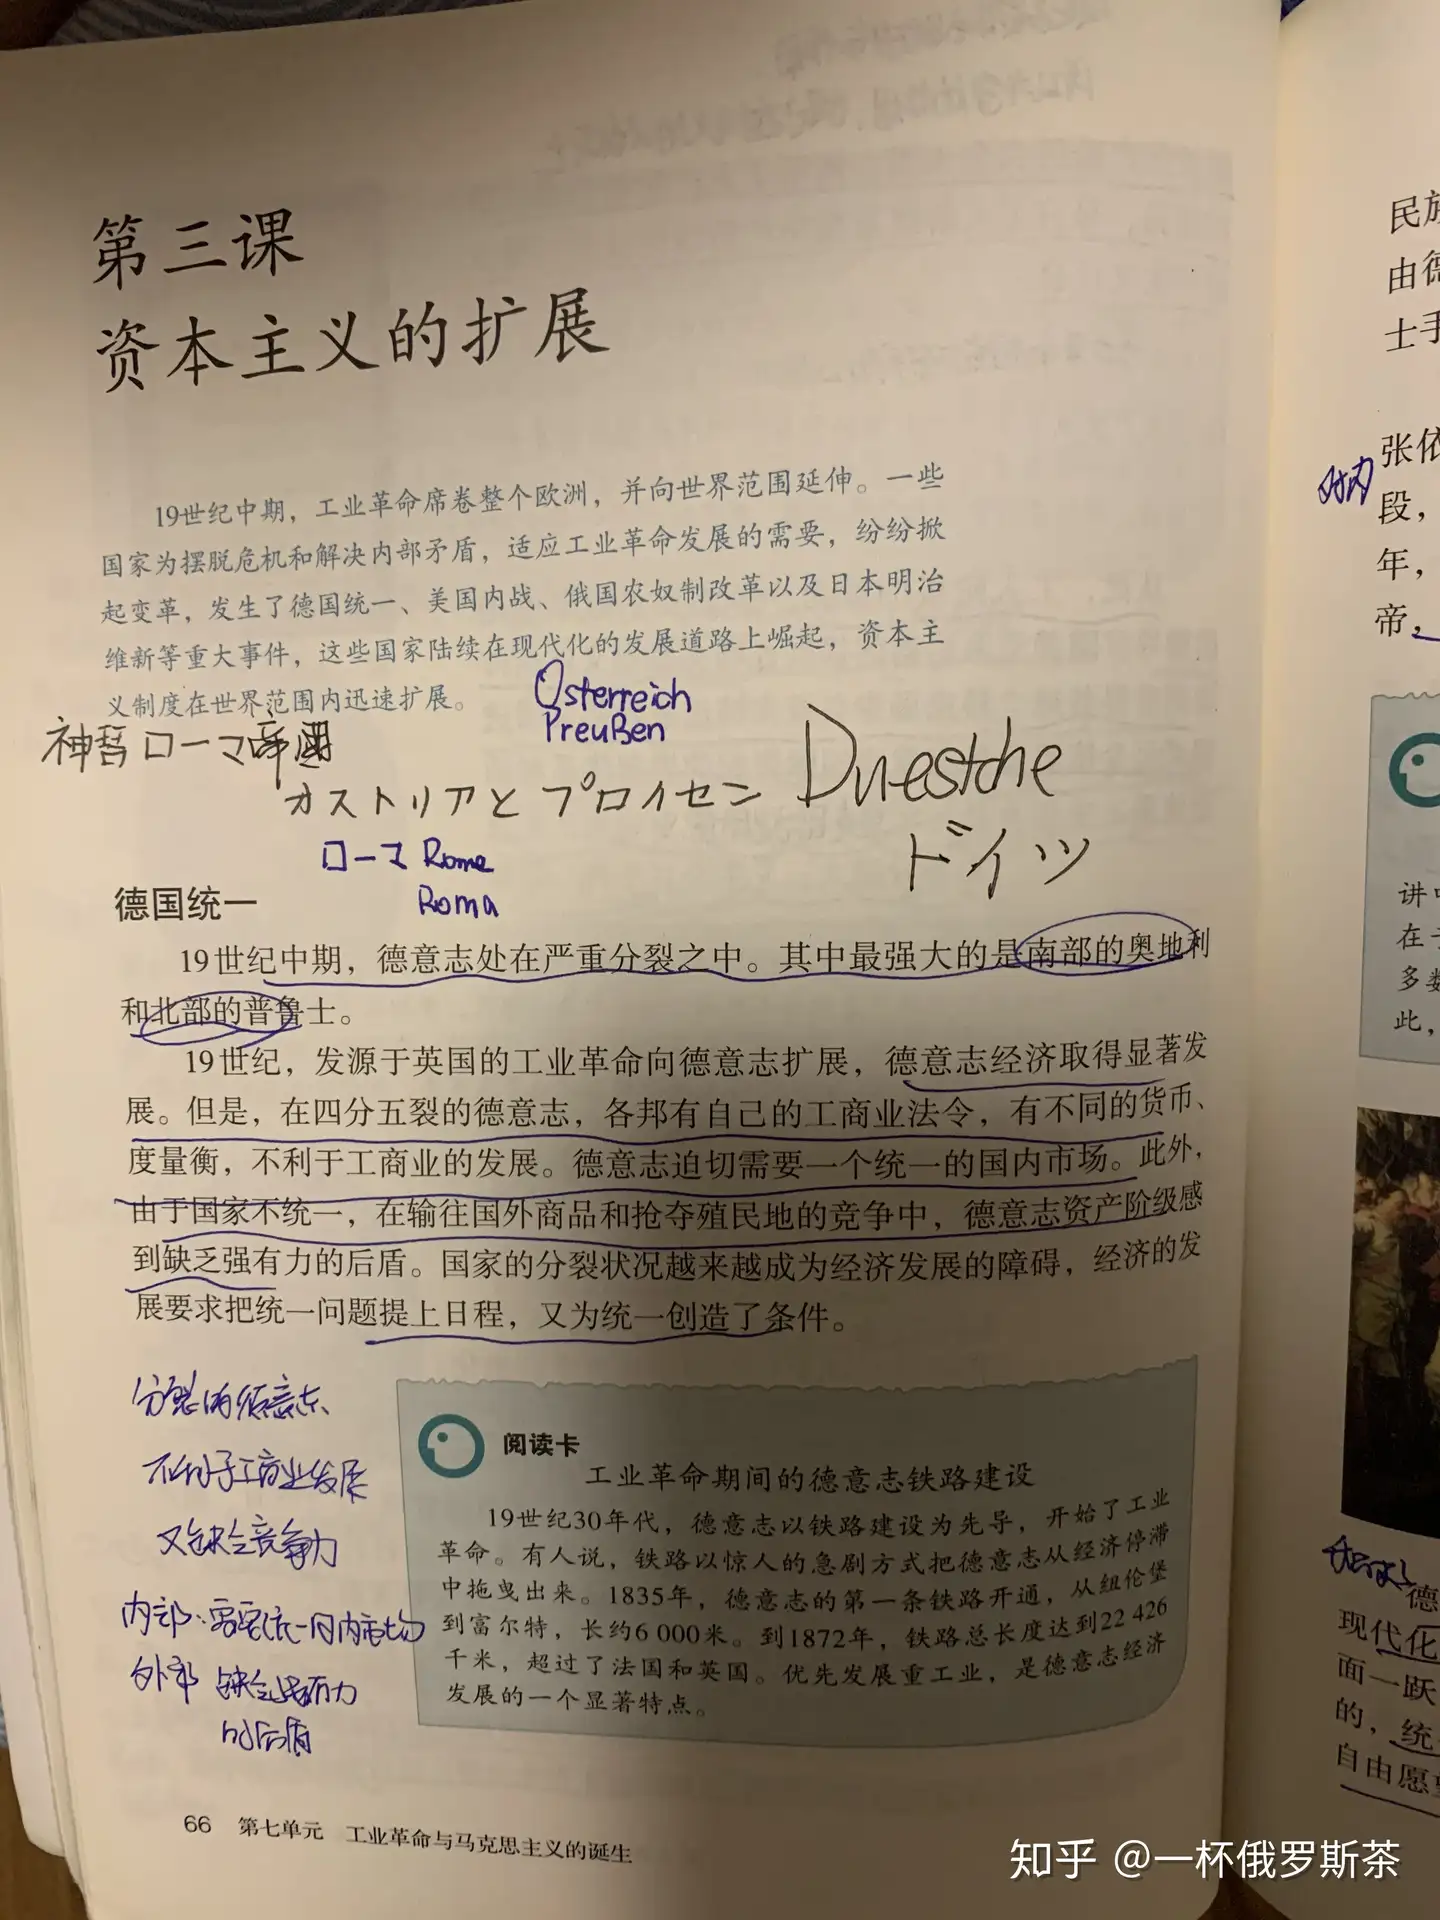 第三课
资本主义的扩展
19世纪中期，工业革命席卷整个欧洲，并向世界范围延伸。一些
国家为摆脱危机和解决内部矛盾，适应工业革命发展的需要，纷纷掀
起变革，发生了德国统一、美国内战、俄国农奴制改革以及日本明治
维新等重大事件，这些国家陆续在现代化的发展道路上崛起，资本主
义制度在世界范围内迅速扩展。
Österreich
Preußen
神聖ローマ帝國
オストリアと プロイセン
Duestche
ドイツ
ローマ Rome
Roma
德国统一
19世纪中期，德意志处在严重分裂之中。其中最强大的是南部的奥地利
和北部的普鲁士。
19世纪，发源于英国的工业革命向德意志扩展，德意志经济取得显著发
展。但是，在四分五裂的德意志，各邦有自己的工商业法令，有不同的货币、
度量衡，不利于工商业的发展。德意志迫切需要一个统一的国内市场。此外，
由于国家不统一，在输往国外商品和抢夺殖民地的竞争中，德意志资产阶级感
到缺乏强有力的后盾。国家的分裂状况越来越成为经济发展的障碍，经济的发
展要求把统一问题提上日程，又为统一创造了条件。
分裂的德意志
不利于工商业发展
又缺乏竞争力
内部：需要统一国内市场
外部 缺乏强有力
的后盾
阅读卡
工业革命期间的德意志铁路建设
19世纪30年代，德意志以铁路建设为先导，开始了工业
革命。有人说，铁路以惊人的急剧方式把德意志从经济停滞
中拖曳出来。1835年，德意志的第一条铁路开通，从纽伦堡
到富尔特，长约6 000米。到1872年，铁路总长度达到22 426
千米，超过了法国和英国。优先发展重工业，是德意志经济
发展的一个显著特点。
66 第七单元 工业革命与马克思主义的诞生
民族
由德
士手
张依
段，
年，
帝，
讲
在
多数
此，
德
现代化
面一跃
的，统
自由愿望
知乎 @一杯俄罗斯茶